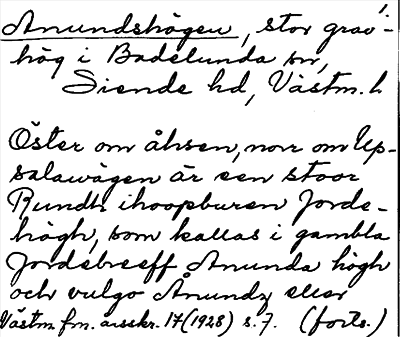 Anundshögen, stor grav-
hög i Badelunda sn,
Siende hd, Västm. l.
Öster om åhsen, norr om Up-
salawägen är een stoor
Rundh ihoopburen Jorde-
högh, som kallas i gambla
Jordebreeff Anunda högh
och vulgo Ånundz eller
Västm. fm. årsskr. 17 (1928) s. 7. (forts.)